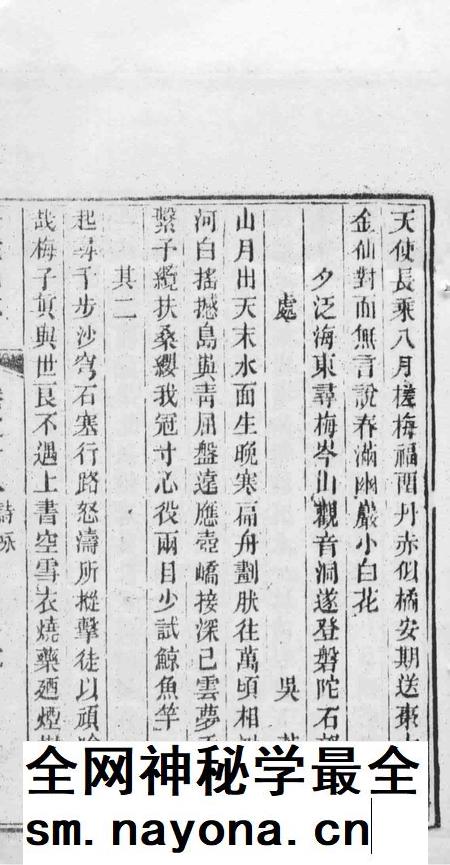 天使長乘八月槎梅福畱丹赤似橘安期送棗
金仙對面無言說春滿幽巖小白花
夕泛海東尋梅岑山觀音洞遂登磐陀石
處
吳
山月出天末水面生晚寒扁舟劃肰往萬頃相
河白搖撼島與靑屈盤遠應壺嶠接深已雲夢
繫予纜扶桑纓我冠寸心役兩目少試鯨魚竿
其二
起尋千步沙穹石塞行路怒濤所摐擊徒以頑
哉梅子眞與世良不遇上書空雪衣燒藥廼煙
詩
全网神秘学最全
sm.nayona.cn